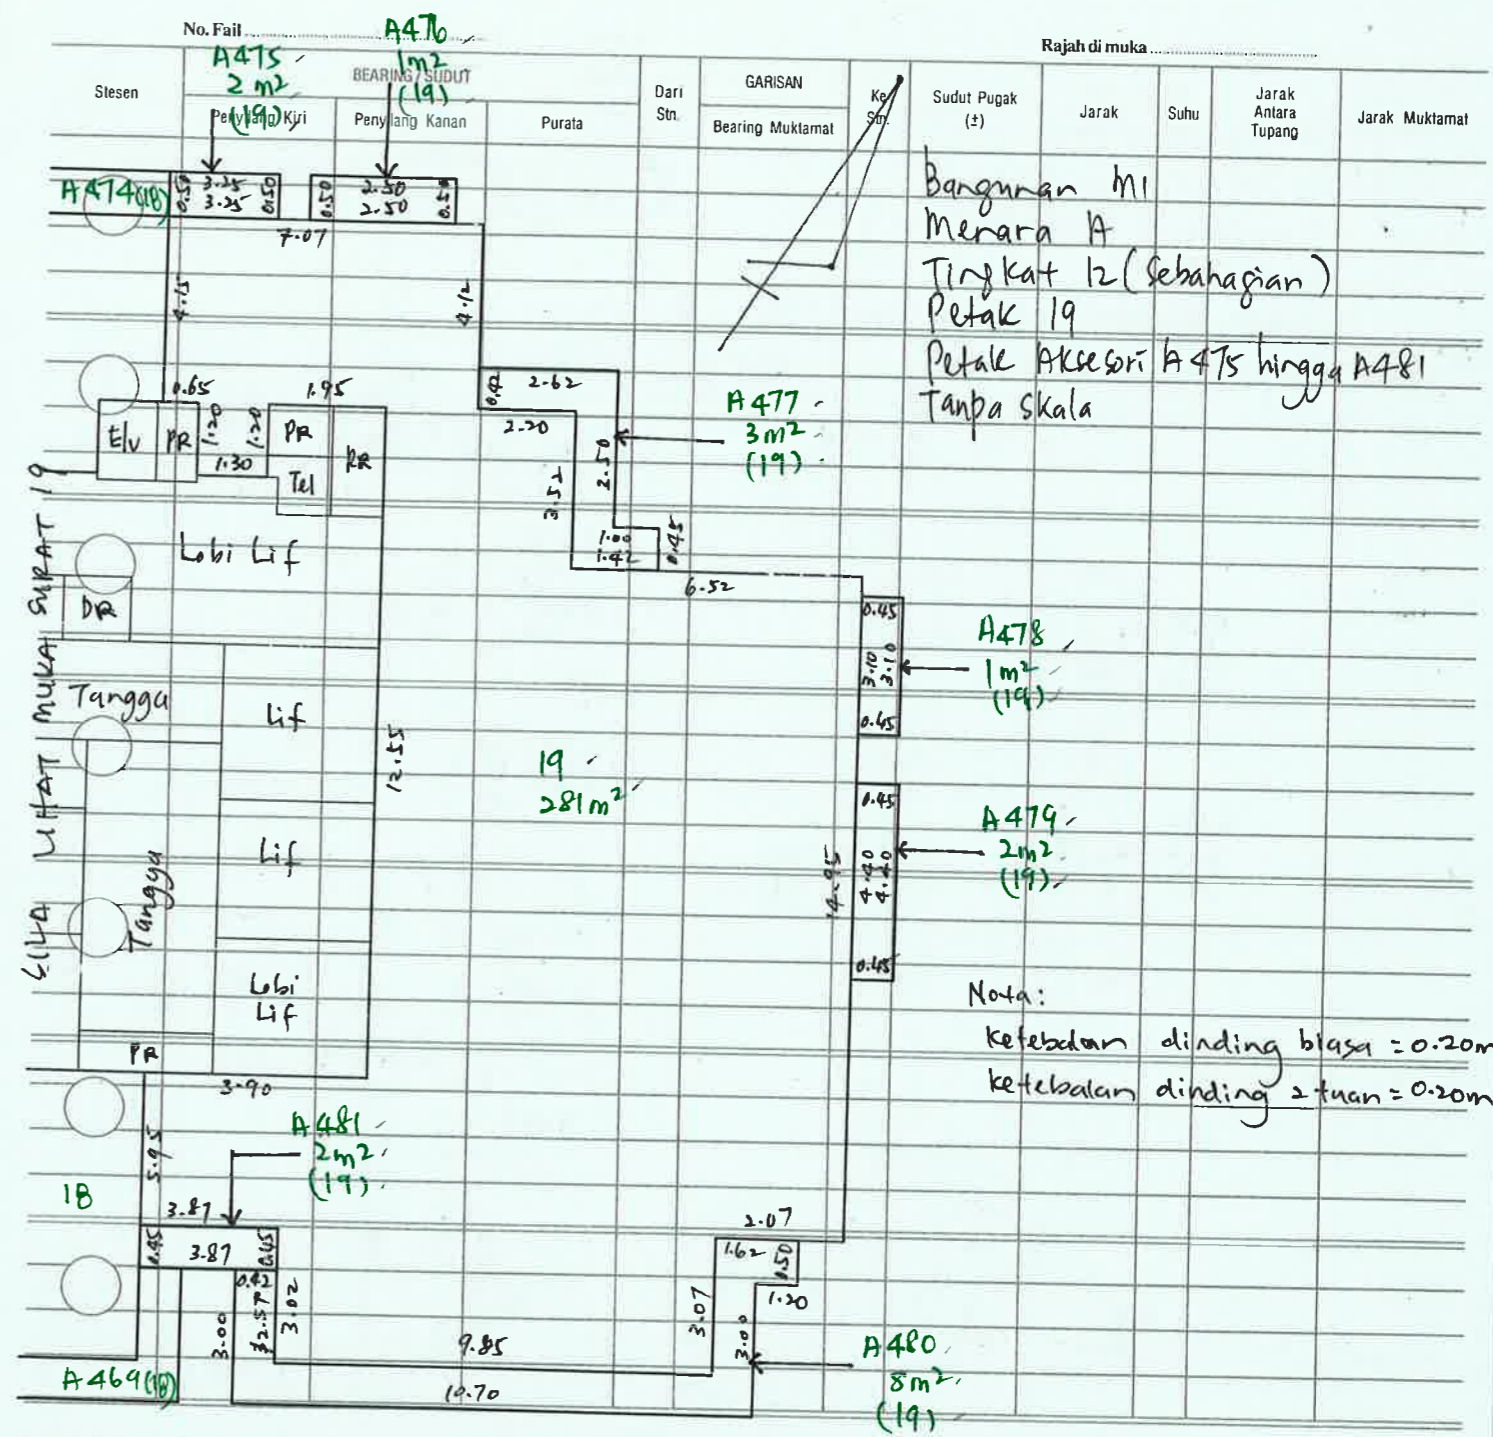 No. Fail
Rajah di muka
Stesen
BEARING / SUDUT
Penyilang Kiri
Penyilang Kanan
Purata
Dari Stn.
GARISAN
Bearing Muktamat
Ke Stn.
Sudut Pugak (±)
Jarak
Suhu
Jarak Antara Tupang
Jarak Muktamat
A475
2 m²
(19)
A476
1m²
(19)
A474(18)
0.50
3.25
3.25
0.50
0.50
2.50
2.50
0.50
7.07
4.15
4.12
Bangunan M1
Menara A
Tingkat 12 (Sebahagian)
Petak 19
Petak Aksesori A475 hingga A481
Tanpa Skala
0.65
1.95
2.62
2.20
Elv
PR
1.20
1.20
1.30
PR
Tel
RR
3.52
2.50
A477
3m²
(19)
1.00
1.42
0.45
6.52
Lobi Lif
DR
SILA LIHAT MUKA SURAT 19
Tangga
Lif
12.55
19
281m²
0.45
3.10
3.10
0.45
A478
1m²
(19)
0.45
4.40
4.40
0.45
A479
2m²
(19)
14.95
Lif
Tangga
Lobi
Lif
PR
3.90
Nota:
Ketebalan dinding biasa = 0.20m
Ketebalan dinding 2 tuan = 0.20m
A481
2m²
(19)
5.95
18
3.87
0.45
3.87
0.45
0.42
3.00
2.57
3.02
2.07
1.62
0.50
1.20
3.07
3.00
9.85
10.70
A480
8m²
(19)
A469(18)